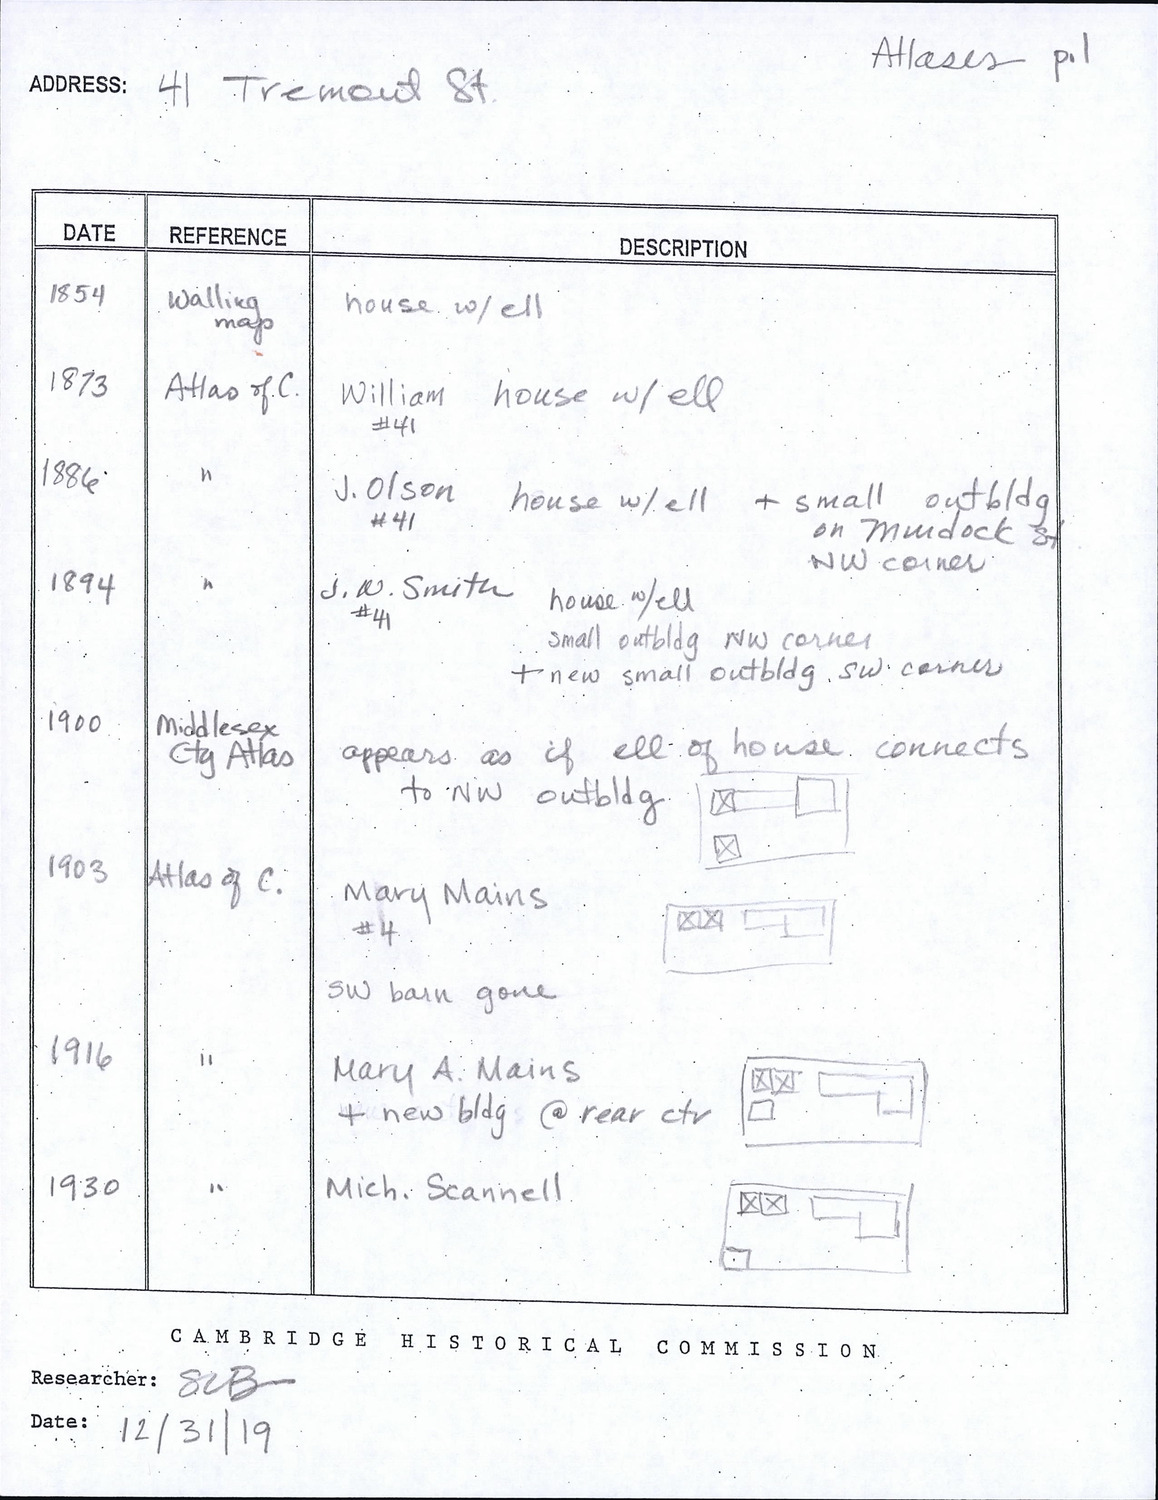 Atlases p.1
ADDRESS: 41 Tremont St.
DATE REFERENCE DESCRIPTION
1854 Walling map house w/ ell
1873 Atlas of C. William house w/ ell
#41
1886 " J. Olson house w/ ell + small outbldg
#41 on Murdock St
NW corner
1894 " J. W. Smith house w/ell
#41
small outbldg NW corner
+ new small outbldg SW corner
1900 Middlesex
Cty Atlas appears as if ell of house connects
to NW outbldg
1903 Atlas of C. Mary Mains
#4
SW barn gone
1916 " Mary A. Mains
+ new bldg @ rear ctr
1930 " Mich. Scannell
CAMBRIDGE HISTORICAL COMMISSION
Researcher: SCB
Date: 12/31/19